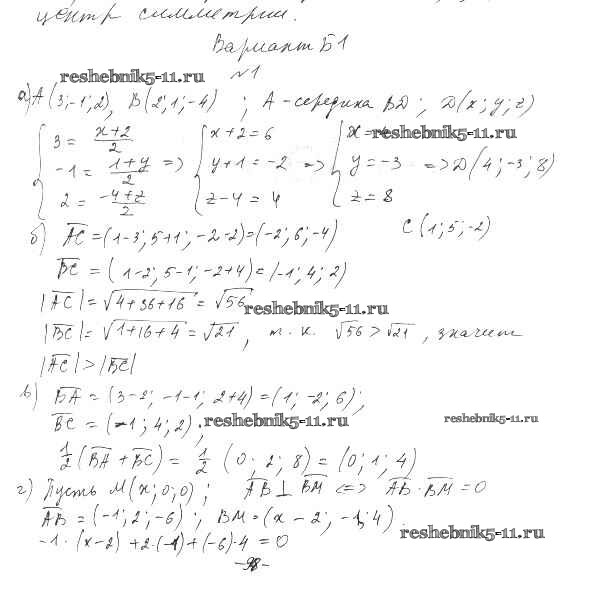 центр симметрии.
Вариант Б1
reshebnik5-11.ru
№1
а) A(3;-1;2), B(2;1;-4) ; A - середина BD ; D(x;y;z)
{ 3 = (x+2)/2 { x+2=6 { x= reshebnik5-11.ru
-1 = (1+y)/2 => y+1=-2 => y=-3 => D(4;-3;8)
2 = (-4+z)/2 z-4=4 z=8
б) AC=(1-3; 5+1; -2-2)=(-2;6;-4) C(1;5;-2)
BC = (1-2; 5-1; -2+4)=(-1;4;2)
|AC|=√4+36+16 = √56 reshebnik5-11.ru
|BC|=√1+16+4 = √21 , т.к. √56 > √21 , значит
|AC|>|BC|
в) BA = (3-2; -1-1; 2+4)=(1;-2;6);
BC = (-1;4;2); reshebnik5-11.ru reshebnik5-11.ru
1/2 (BA+BC) = 1/2 (0; 2; 8) = (0;1;4)
г) Пусть M(x;0;0); AB⊥BM <=> AB·BM=0
AB=(-1;2;-6) ; BM=(x-2; -1; 4)
reshebnik5-11.ru
-1·(x-2)+2·(-1)+(-6)·4=0